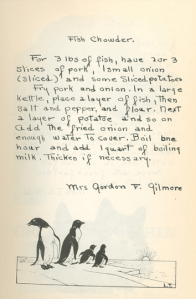 Fish Chowder.
For 3 lbs of fish, have 2 or 3
slices of pork, 1 small onion
(sliced) and some sliced potatoes
Fry pork and onion. In a large
kettle, place a layer of fish, then
salt and pepper, and flour. Next
a layer of potatoe and so on
add the fried onion and
enough water to cover. Boil one
hour and add 1 quart of boiling
milk. Thicken if necessary.
Mrs Gordon F. Gilmore